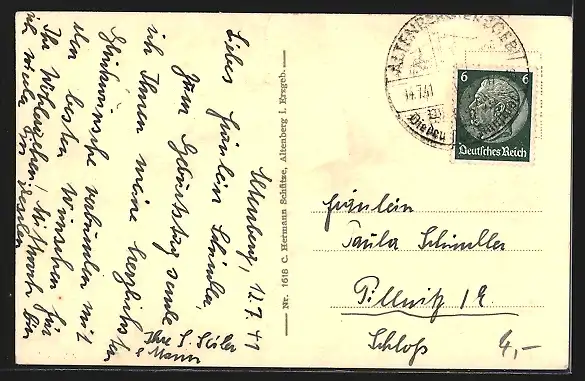 Altenberg, 12.7.41
Liebes Fräulein Schindler,
Zum Geburtstag sende
ich Ihnen meine herzlichsten
Glückwünsche verbunden mit
den besten Wünschen für
Ihr Wohlergehen,
Ihre
Nr. 1618 C. Hermann Schütze, Altenberg i. Erzgeb.
ALTENBERG (ERZGEB)
14.7.41
6 6
Deutsches Reich
Fräulein
Paula Schindler
Pillnitz / E.
Schloß
4,-